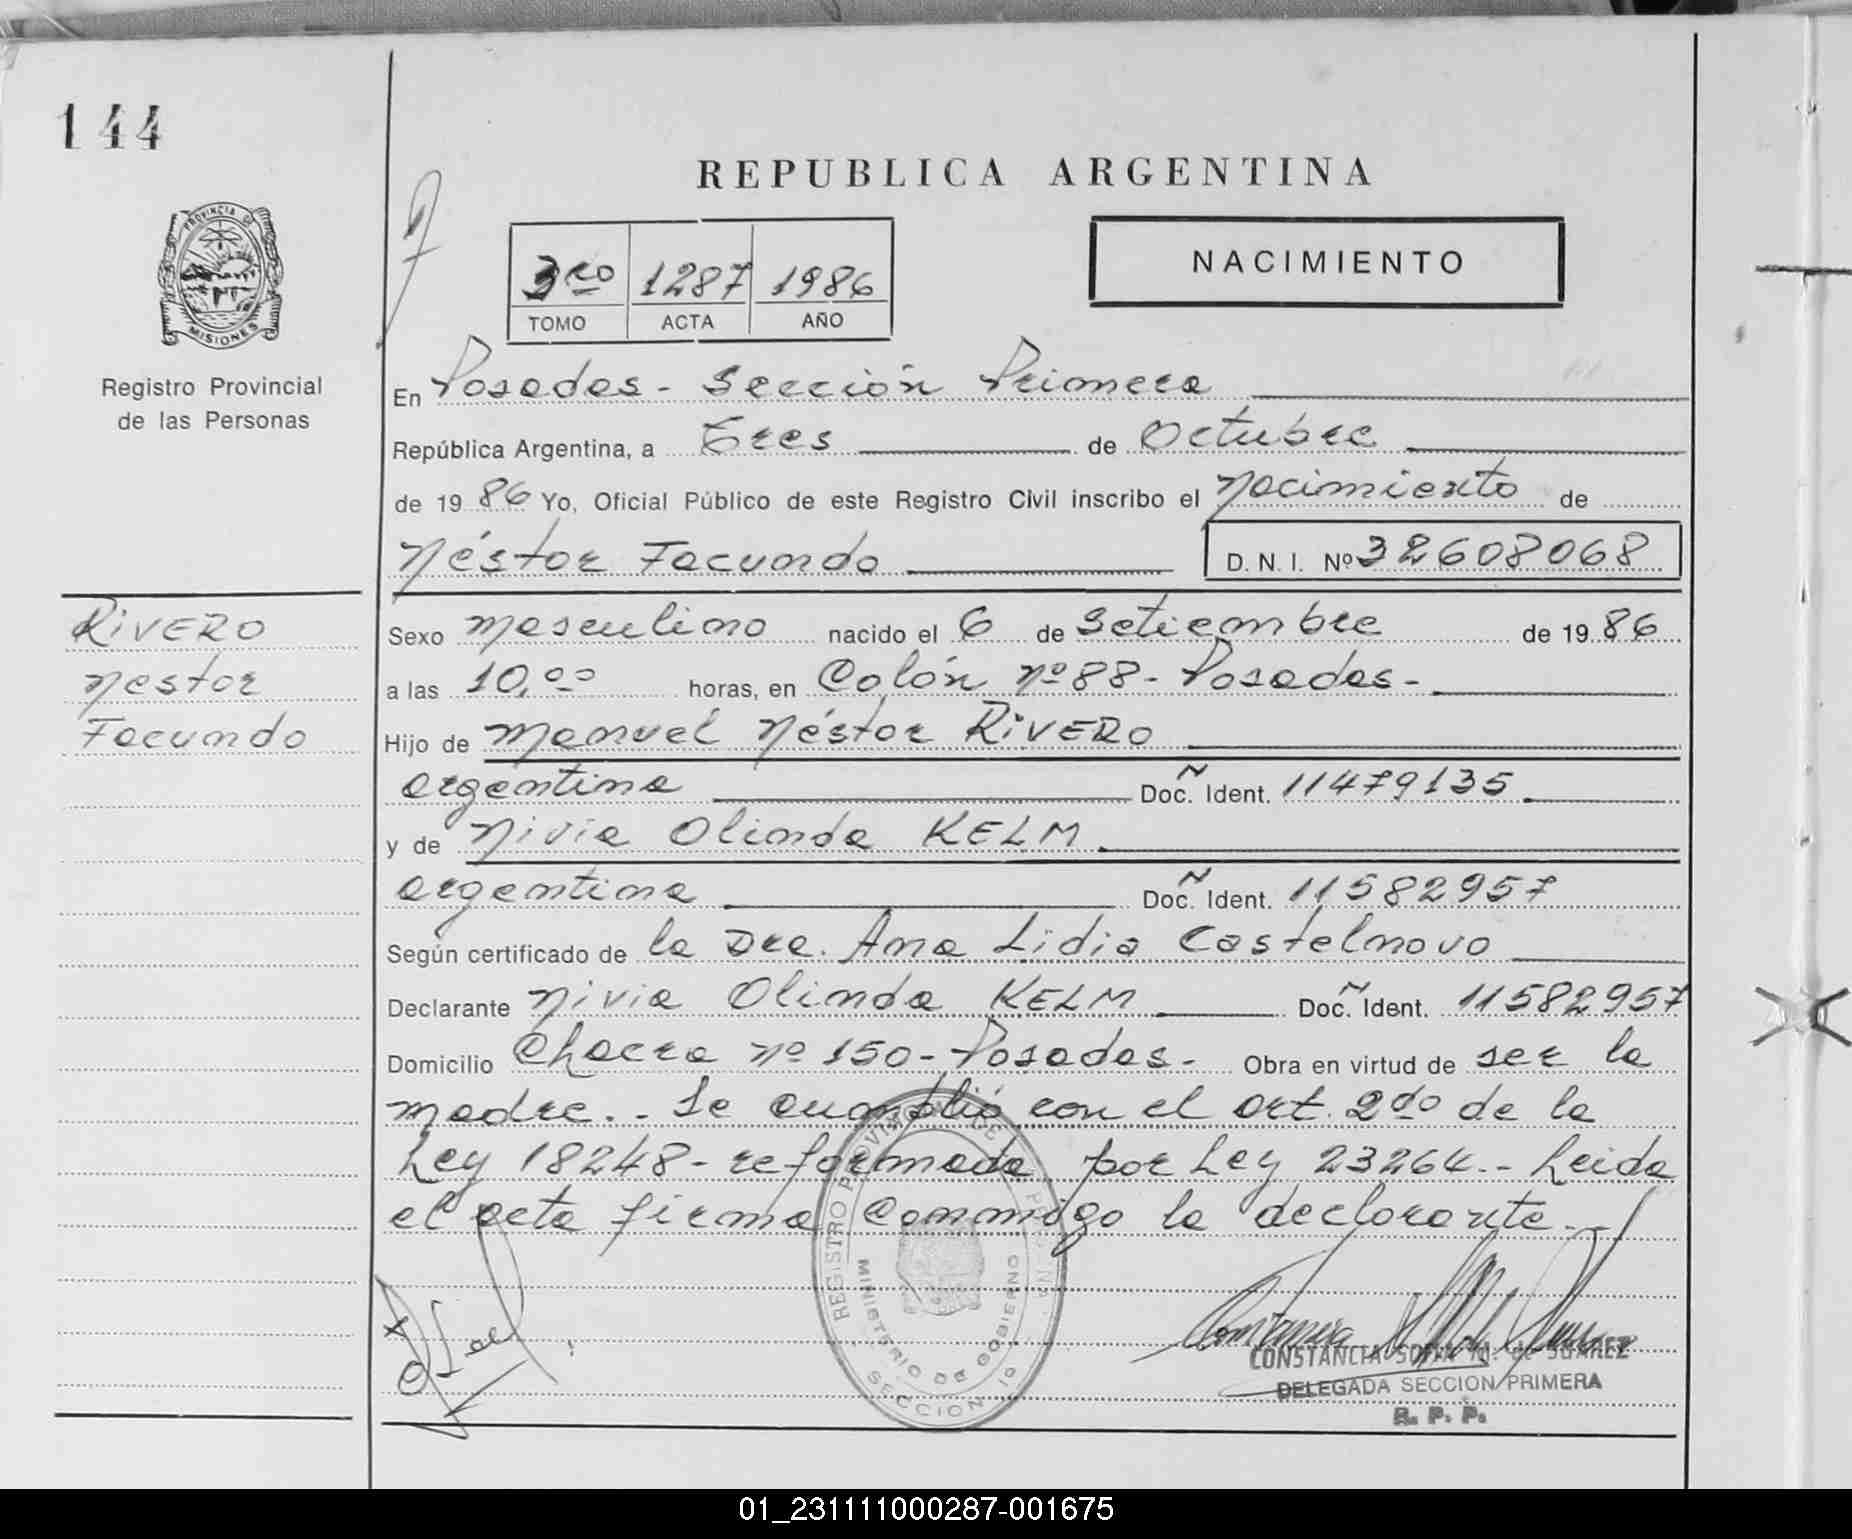 144
REPUBLICA ARGENTINA
PROVINCIA DE
MISIONES
Registro Provincial
de las Personas
3ro 1287 1986
TOMO ACTA AÑO
NACIMIENTO
En Posadas - Sección Primera
República Argentina, a Tres de Octubre
de 19 86 Yo, Oficial Público de este Registro Civil inscribo el Nacimiento de
Néstor Facundo D. N. I. Nº 32608068
RIVERO
Nestor
Facundo
Sexo Masculino nacido el 6 de Setiembre de 19 86
a las 10,00 horas, en Colón Nº 88 - Posadas -
Hijo de Manuel Néstor RIVERO
argentina Doc. Ident. 11479135
y de Nivia Olinda KELM
argentina Doc. Ident. 11582957
Según certificado de la Dra. Ana Lidia Castelnovo
Declarante Nivia Olinda KELM Doc. Ident. 11582957
Domicilio Chacra Nº 150 - Posadas - Obra en virtud de ser la
madre. - Se cumplió con el art. 2do de la
Ley 18248 - reformada por Ley 23264. - Leida
el acta firma conmigo la declarante. -
REGISTRO PROVINCIAL DE PERSONAS
MINISTERIO DE GOBIERNO
SECCION 1º
CONSTANCIA SOFIA M. de SUAREZ
DELEGADA SECCION PRIMERA
R. P. P.
01_231111000287-001675